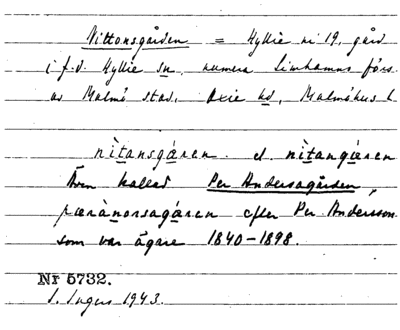 Nittonsgården = Hyllie nr 19, gård
i f.d. Hyllie sn, numera Limhamns förs.
av Malmö stad, Oxie hd, Malmöhus l.
nìtansgáren el. nìtangǽren
Även kallad Per Andersagården,
pæranorsagáren efter Per Andersson
som var ägare 1840-1898.
Nr 5732.
1943.